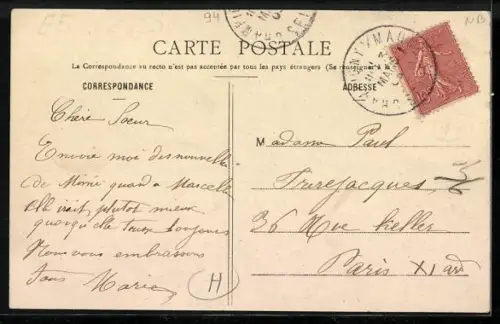 94
NB
CARTE POSTALE
La Correspondance au recto n'est pas acceptée par tous les pays étrangers (Se renseigner à la
CORRESPONDANCE
ADRESSE
Chère Soeur
Envoie moi des nouvelles
de Mémé quand a Marcelle
elle irait plutot mieux
quoiqu'elle tousse toujours
Nous vous embrassons
Tous Maria
H
Madame Paul
Frerejacques
36 Rue Keller
Paris XI ard